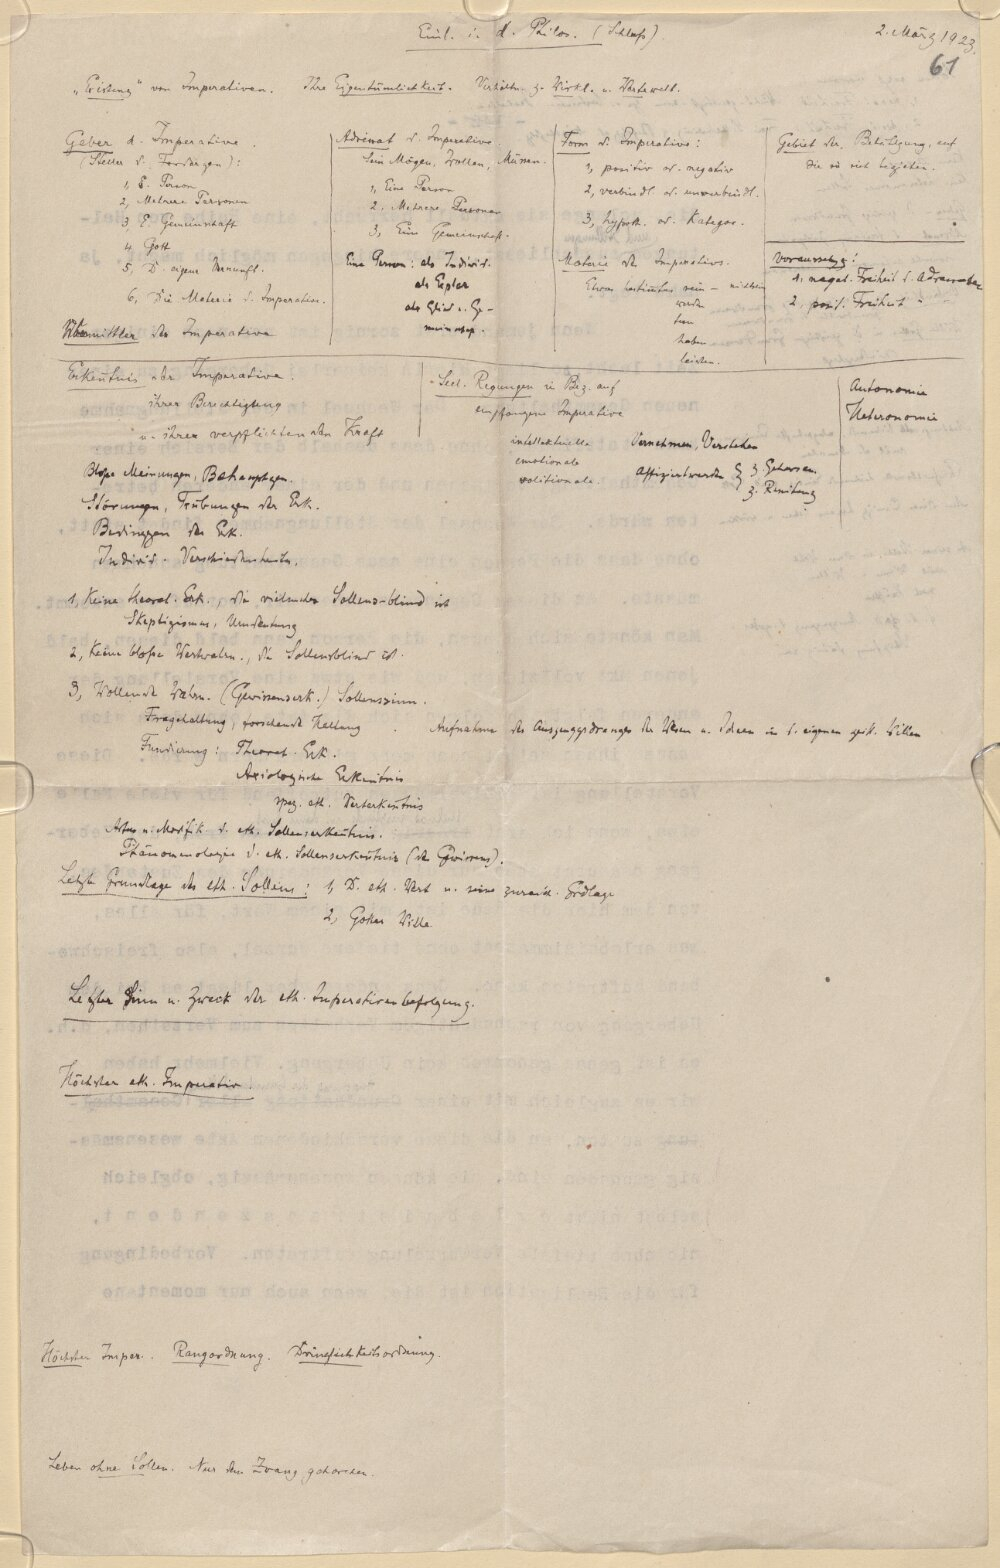 Einl. i. d. Philos. (Schluß)
2. März 1923.
61
„Existenz“ von Imperativen. Ihre Eigentümlichkeit. Verhältn. z. Wirkl. u. Wertewelt.
Geber d. Imperative.
(Steller d. Forderungen):
1, E. Person
2, Mehrere Personen
3, E. Gemeinschaft
4, Gott
5, D. eigene Vernunft.
6, Die Materie d. Imperative.
Übermittler der Imperative
Adressat d. Imperativs.
Sein Mögen, Wollen, Müssen.
1, Eine Person
2, Mehrere Personen
3, Eine Gemeinschaft.
Eine Person: als Individ.
als Glied e. Ge-
meinschap.
Form d. Imperativs:
1, positiv od. negativ
2, verbindl. od. unverbindl.
3, hypoth. od. kategor.
Materie des Imperativs.
Etwas bestimmtes sein – nicht sein
werden
tun
haben
leisten.
Gebiet der Betätigung, auf
die es sich beziehen.
Voraussetzg:
1. negat. Freiheit d. Adressaten
2. posit. Freiheit " "
Erkenntnis der Imperative.
ihrer Berechtigung
u. ihrer verpflichtenden Kraft
Bloße Meinungen, Behauptgen.
Störungen, Trübungen der Erk.
Bedinggen der Erk.
Individ. Verschiedenheiten.
Seel. Regungen in Bez. auf
empfangene Imperative
intellektuelle Vernehmen, Verstehen
emotionale
volitionale. Affiziertwerden { z. Gehorsam
z. Renitenz
Autonomie
Heteronomie
1, Keine theoret. Erk., die vielmehr Sollens-blind ist
Skeptizismus, Umdeutung
2, Keine bloße Wertwahrn., die Sollensblind ist.
3, Wollende Wahrn. (Gewissenserk.) Sollenssinn.
Fragehaltung, horchende Haltung. Aufnahme des Auszeugungsdranges der Wesen u. Ideen in d. eigenen geist. Willen
Fundierung: Theoret. Erk.
Axiologische Erkenntnis
spez. eth. Werterkenntnis
Arten u. Modifik. d. eth. Sollenserkenntnis.
Phänomenologie d. eth. Sollenserkenntnis (des Gewissens).
Letzte Grundlage des eth. Sollens: 1, D. eth. Wert u. seine zureich. Grdlage
2, Gottes Wille
Letzter Sinn u. Zweck der eth. Imperativenbefolgung.
Höchster eth. Imperativ:
Höchster Imper. Rangordnung. Dringlichkeitsordnung.
Leben ohne Sollen. Nur dem Zwang gehorchen.